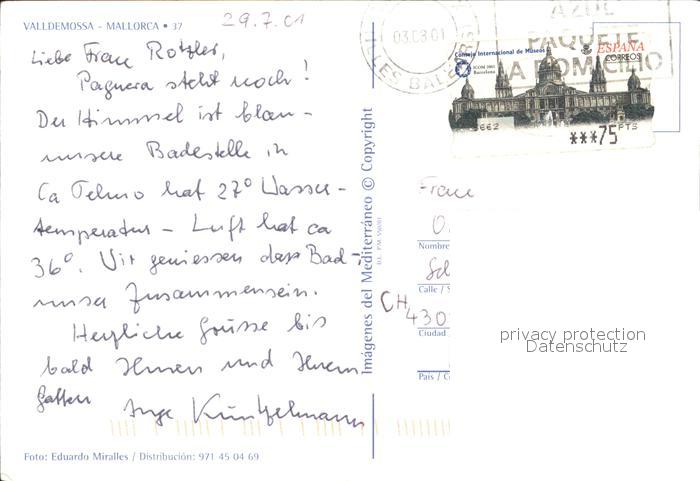 VALLDEMOSSA – MALLORCA • 37
29.7.01
Liebe Frau Rotzler,
Paguera steht noch!
Der Himmel ist blau –
unsere Badestelle in
Ca Telmo hat 27° Wasser-
temperatur – Luft hat ca
36°. Wir geniessen das Bad –
unser Zusammensein.
Herzliche Grüsse bis
bald Ihnen und Ihrem
Gatten
Inge Küntzelmann
Foto: Eduardo Miralles / Distribución: 971 45 04 69
Imágenes del Mediterráneo © Copyright
03.08.01
ILLES BALEARS
AZUL
PAQUETE
A DOMICILIO
Consejo Internacional de Museos
ICOM 2001
Barcelona
ESPAÑA
CORREOS
***75 PTS
Frau
Nombre
Calle / S
CH
430
Ciudad
País / C
privacy protection
Datenschutz